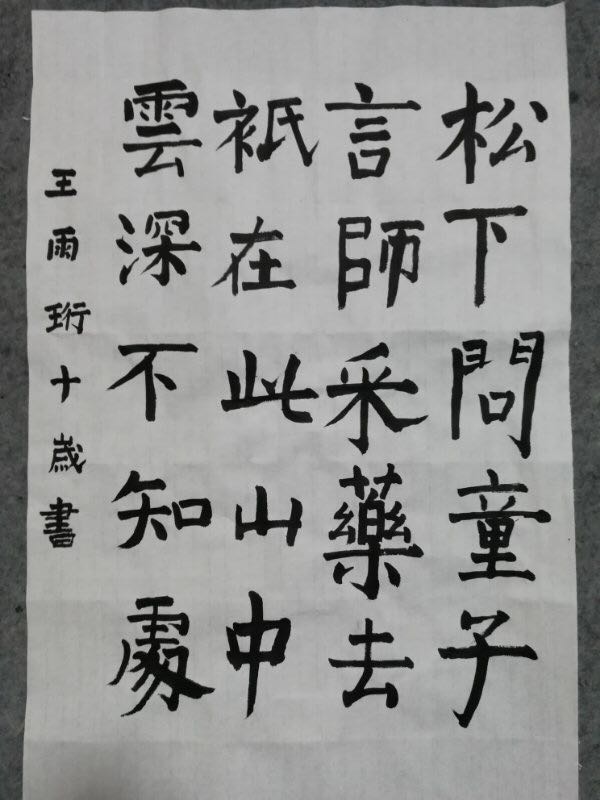 松下問童子
言師采藥去
衹在此山中
雲深不知處
王雨珩十歲書